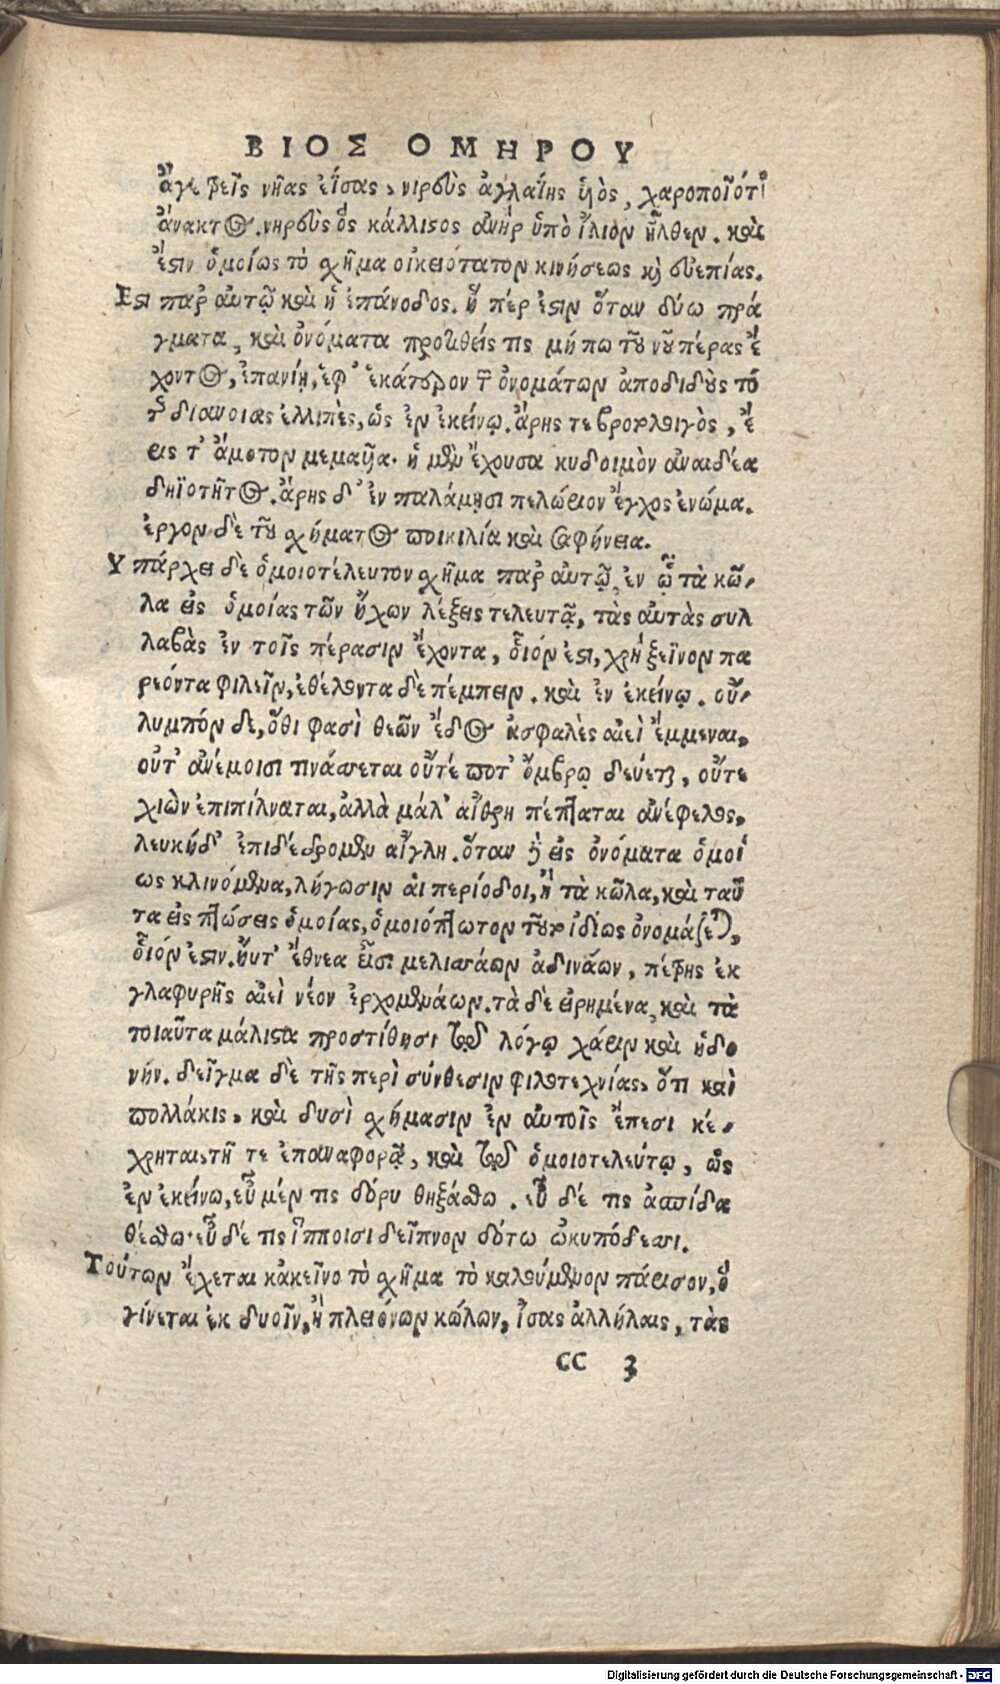 ΒΙΟΣ ΟΜΗΡΟΥ
ἄγε τρεῖς νῆας ἐΐσας, νιρεὺς ἀγλαΐης ὑὸς, χαροποῖό τ'
ἄνακτος. νηρεὺς ὃς κάλλιστος ἀνὴρ ὑπὸ ἴλιον ἦλθεν. καὶ
ἔστιν ὁμοίως τὸ σχῆμα οἰκειότατον κινήσεως κὶ εὐεπίας.
Ἔστι παρ' αὐτῷ καὶ ἡ ἐπάνοδος. ἥ πέρ ἐστιν ὅταν δύω πρά
γματα, καὶ ὀνόματα προθείς τις μή πω τοῦ νοῦ πέρας ἔ
χοντος, ἐπανίῃ, ἐφ' ἑκάτερον τῶν ὀνομάτων ἀποδιδοὺς τὸ
τῆς διανοίας ἐλλιπὲς, ὡς ἐν ἐκείνῳ. ἄρης τε βροτολοιγὸς, ἔ
εις τ' ἄμοτον μεμαυῖα· ἡ μὲν ἔχουσα κυδοιμὸν ἀναιδέα
δηϊοτῆτος. ἄρης δ' ἐν παλάμῃσι πελώριον ἔγχος ἐνώμα.
ἔργον δὲ τοῦ σχήματος ποικιλία καὶ σαφήνεια.
Υπάρχει δὲ ὁμοιοτέλευτον σχῆμα παρ' αὐτῷ, ἐν ᾧ τὰ κῶ-
λα εἰς ὁμοίας τῶν ἤχων λέξεις τελευτᾷ, τὰς αὐτὰς συλ
λαβὰς ἐν τοῖς πέρασιν ἔχοντα, οἷόν ἐστι, χρὴ ξεῖνον πα
ρεόντα φιλεῖν, ἐθέλοντα δὲ πέμπειν. καὶ ἐν ἐκείνῳ. οὔ-
λυμπόν δε, ὅθι φασὶ θεῶν ἕδος ἀσφαλὲς αἰεὶ ἔμμεναι,
οὔτ' ἀνέμοισι τινάσσεται οὔτέ ποτ' ὄμβρῳ δεύεται, οὔτε
χιὼν ἐπιπίλναται, ἀλλὰ μάλ' αἴθρη πέπταται ἀνέφελος,
λευκὴ δ' ἐπιδέδρομεν αἴγλη. ὅταν ἢ εἰς ὀνόματα ὁμοί
ως κλινόμενα, λήγωσιν αἱ περίοδοι, ἢ τὰ κῶλα, καὶ ταῦ
τα εἰς πτώσεις ὁμοίας, ὁμοιόπτωτον τοῦτ' ἰδίως ὀνομάζεται,
οἷόν ἐστιν. ἠΰτ' ἔθνεα εἶσι μελισσάων ἀδινάων, πέτρης ἐκ
γλαφυρῆς αἰεὶ νέον ἐρχομενάων. τὰ δὲ εἰρημένα, καὶ τὰ
τοιαῦτα μάλιστα προστίθησι τῷ λόγῳ χάριν καὶ ἡδο
νήν. δεῖγμα δὲ τῆς περὶ σύνθεσιν φιλοτεχνίας, ὅτι καὶ
πολλάκις, καὶ δυσὶ σχήμασιν ἐν αὐτοῖς ἔπεσι κέ-
χρηται, τῇ τε ἐπαναφορᾷ, καὶ τῷ ὁμοιοτελεύτῳ, ὡς
ἐν ἐκείνῳ, εὖ μέν τις δόρυ θηξάσθω. εὖ δέ τις ἀσπίδα
θέσθω· εὖ δέ τις ἵπποισι δεῖπνον δότω ὠκυπόδεσσι.
Τούτων ἔχεται κἀκεῖνο τὸ σχῆμα τὸ καλούμενον πάρισον, ὃ
γίνεται ἐκ δυοῖν, ἢ πλειόνων κώλων, ἴσας ἀλλήλαις, τὰς
CC 3
Digitalisierung gefördert durch die Deutsche Forschungsgemeinschaft - DFG